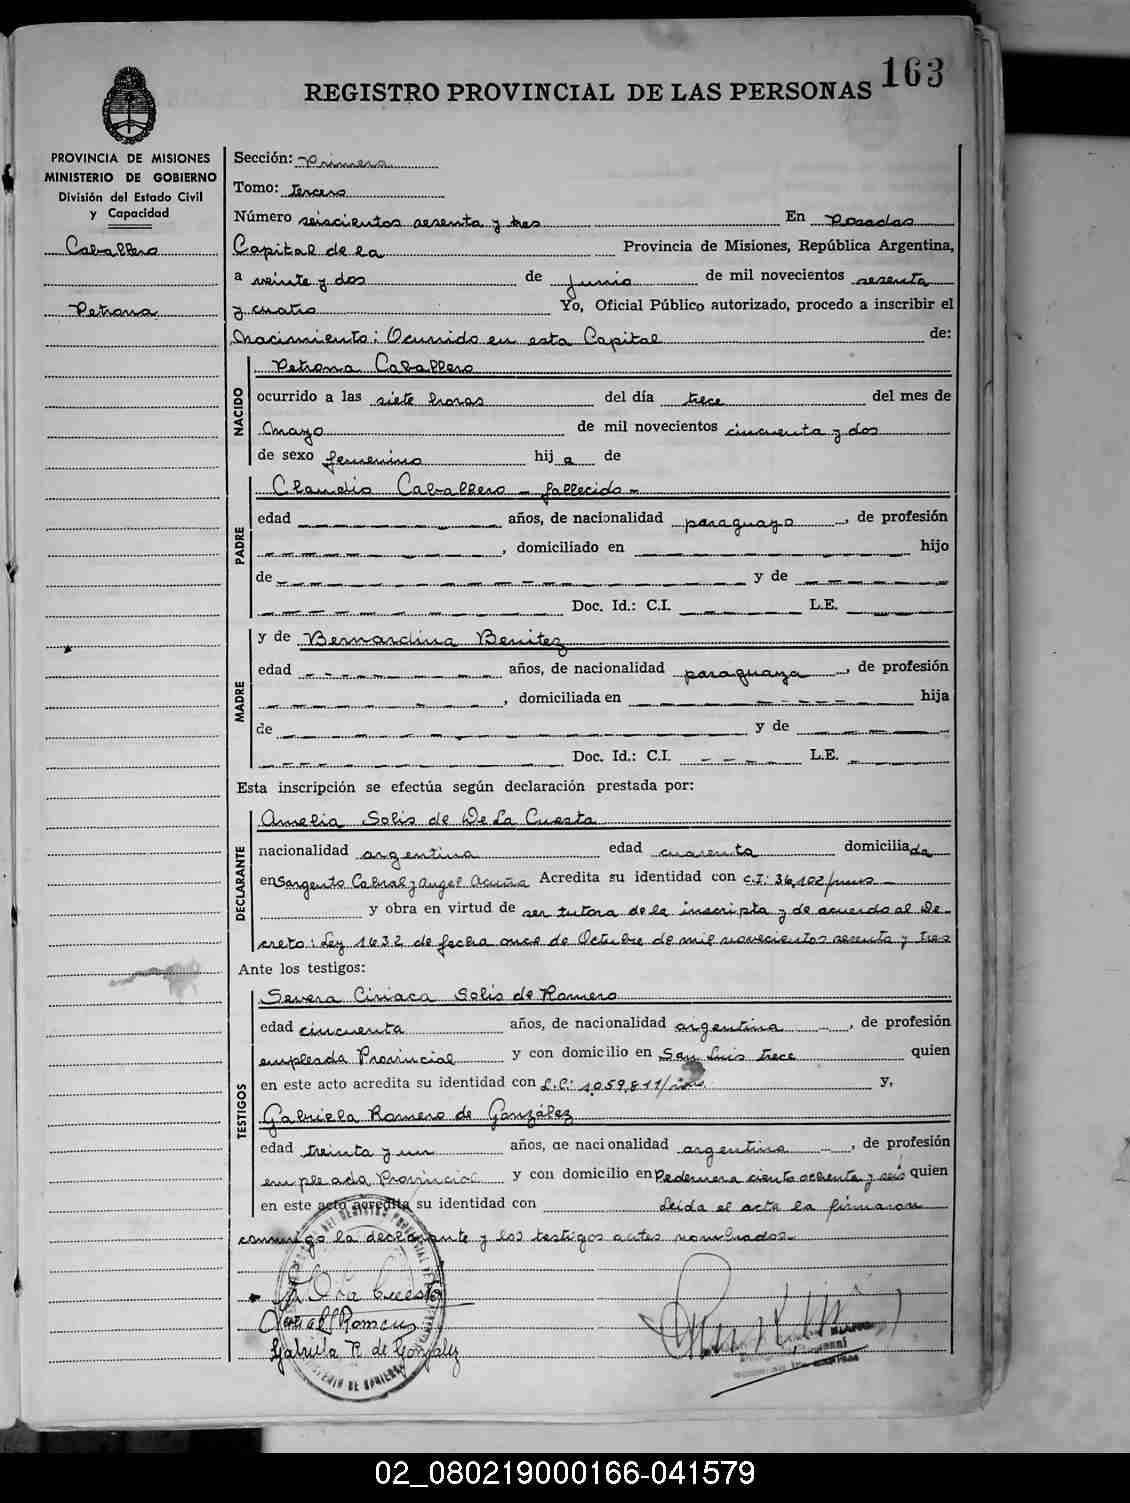 163
REGISTRO PROVINCIAL DE LAS PERSONAS
PROVINCIA DE MISIONES
MINISTERIO DE GOBIERNO
División del Estado Civil
y Capacidad
Caballero
Petrona
Sección: Primera
Tomo: tercero
Número seiscientos sesenta y tres En Posadas
Capital de la Provincia de Misiones, República Argentina,
a veinte y dos de Junio de mil novecientos sesenta
y cuatro Yo, Oficial Público autorizado, procedo a inscribir el
Nacimiento: Ocurrido en esta Capital de:
NACIDO
Petrona Caballero
ocurrido a las siete horas del día trece del mes de
Mayo de mil novecientos cincuenta y dos
de sexo femenino hij a de
PADRE
Claudio Caballero - fallecido -
edad años, de nacionalidad paraguayo, de profesión
, domiciliado en hijo
de y de
Doc. Id.: C.I. L.E.
MADRE
y de Bernardina Benitez
edad años, de nacionalidad paraguaya, de profesión
, domiciliada en hija
de y de
Doc. Id.: C.I. L.E.
Esta inscripción se efectúa según declaración prestada por:
DECLARANTE
Amelia Solis de De La Cuesta
nacionalidad argentina edad cuarenta domiciliada
en Sargento Cabral y Angel Acuña Acredita su identidad con C.I: 36,102/mnes
y obra en virtud de ser tutora de la inscripta y de acuerdo al De-
creto: Ley 1632 de fecha once de Octubre de mil novecientos sesenta y tres
Ante los testigos:
TESTIGOS
Severa Ciriaca Solis de Romero
edad cincuenta años, de nacionalidad argentina, de profesión
empleada Provincial y con domicilio en San Luis trece quien
en este acto acredita su identidad con L.C: 1,059,811/ y,
Gabriela Romero de González
edad treinta y un años, de nacionalidad argentina, de profesión
empleada Provincial y con domicilio en Pedernera ciento ochenta y seis quien
en este acto acredita su identidad con Leída el acta la firmaron
conmigo la declarante y los testigos antes nombrados.
De la Cuesta
Romero
Gabriela R. de González
02_080219000166-041579